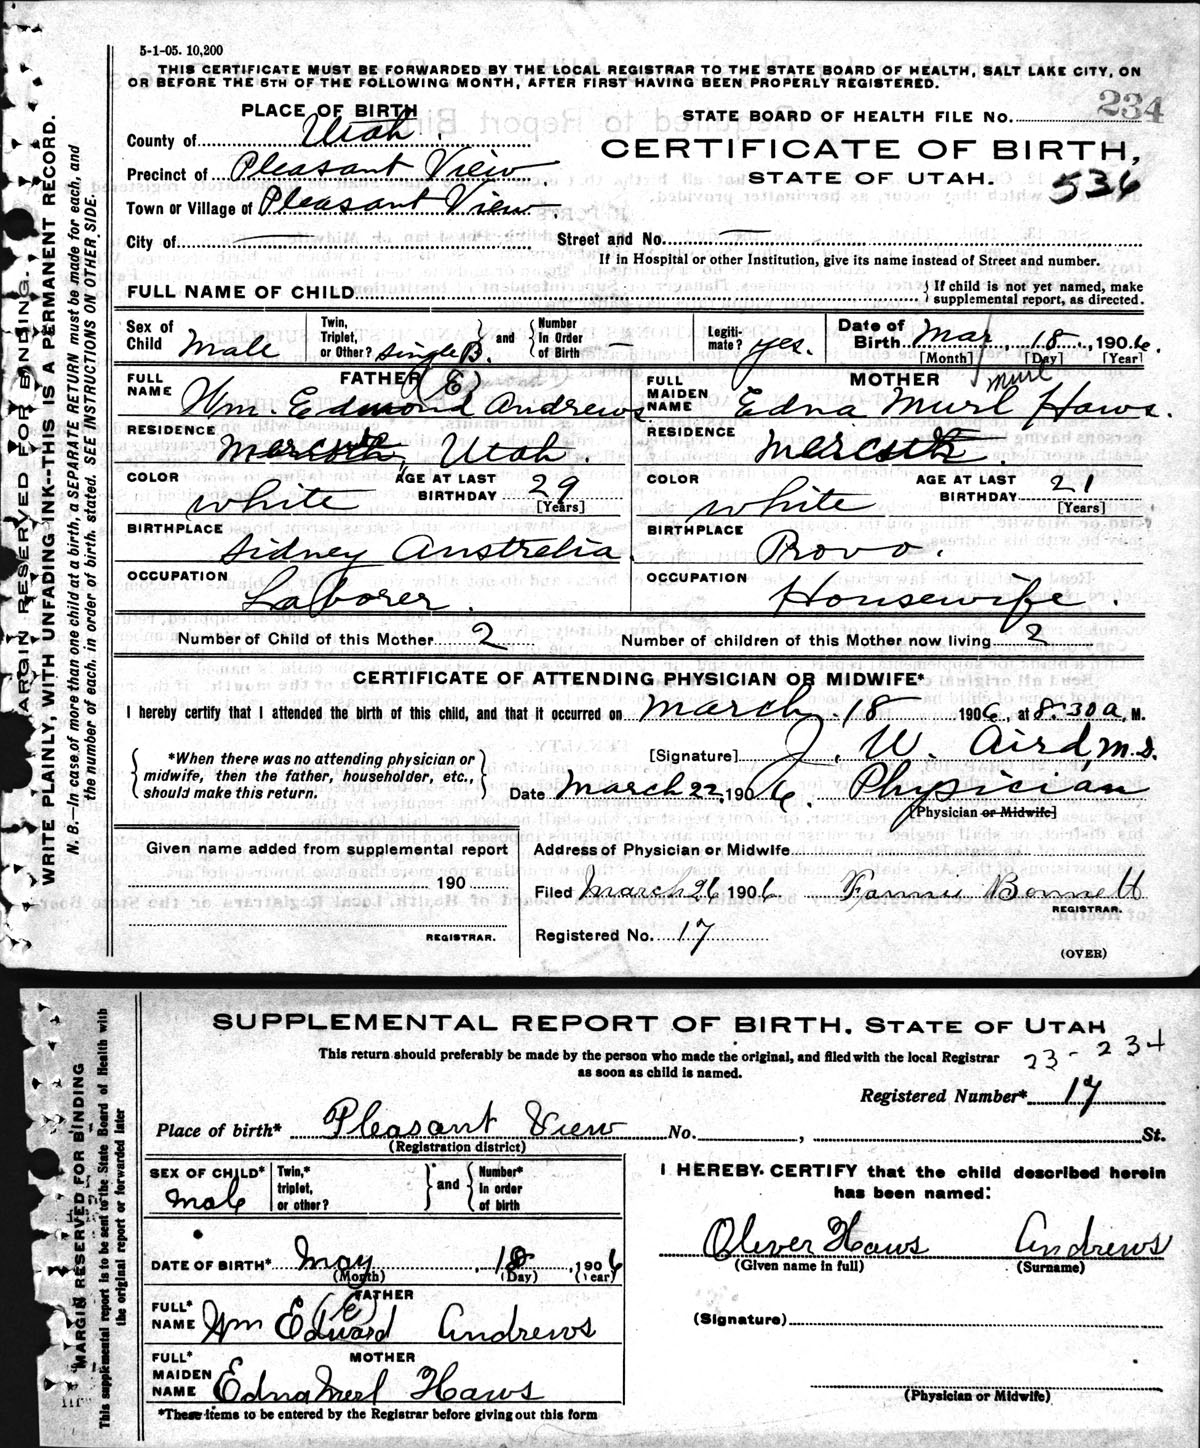 5-1-05. 10,200
THIS CERTIFICATE MUST BE FORWARDED BY THE LOCAL REGISTRAR TO THE STATE BOARD OF HEALTH, SALT LAKE CITY, ON
OR BEFORE THE 5TH OF THE FOLLOWING MONTH, AFTER FIRST HAVING BEEN PROPERLY REGISTERED.
MARGIN RESERVED FOR BINDING.
WRITE PLAINLY, WITH UNFADING INK--THIS IS A PERMANENT RECORD.
N. B.—In case of more than one child at a birth, a SEPARATE RETURN must be made for each, and
the number of each. in order of birth. stated. SEE INSTRUCTIONS ON OTHER SIDE.
PLACE OF BIRTH
County of Utah.
Precinct of Pleasant View.
Town or Village of Pleasant View.
City of —
STATE BOARD OF HEALTH FILE No. 234
CERTIFICATE OF BIRTH,
STATE OF UTAH. 536
Street and No. —
If in Hospital or other Institution, give its name instead of Street and number.
FULL NAME OF CHILD { If child is not yet named, make
supplemental report, as directed.
Sex of Child Male Twin, Triplet, or Other? single B. and Number In Order of Birth — Legitimate? yes. Date of Birth Mar, 18, 1906.
[Month] [Day] [Year]
FATHER (E)
FULL NAME Wm. Edmond Andrews.
RESIDENCE Utah.
COLOR white AGE AT LAST BIRTHDAY 29 [Years]
BIRTHPLACE Sidney Australia.
OCCUPATION Laborer.
MOTHER Murl
FULL MAIDEN NAME Edna Murl Haws.
RESIDENCE
COLOR white AGE AT LAST BIRTHDAY 21 [Years]
BIRTHPLACE Provo.
OCCUPATION Housewife.
Number of Child of this Mother 2 Number of children of this Mother now living 2
CERTIFICATE OF ATTENDING PHYSICIAN OR MIDWIFE*
I hereby certify that I attended the birth of this child, and that it occurred on March 18 1906, at 8:30 a, M.
*When there was no attending physician or
midwife, then the father, householder, etc.,
should make this return.
[Signature] J. W. Aird, M.D.
Date March 22, 1906. Physician
[Physician or Midwife]
Given name added from supplemental report
190
REGISTRAR.
Address of Physician or Midwife
Filed March 26 1906 Fannie Bonnett
REGISTRAR.
Registered No. 17
(OVER)
MARGIN RESERVED FOR BINDING
This supplemental report is to be sent to the State Board of Health with
the original report or forwarded later
SUPPLEMENTAL REPORT OF BIRTH, STATE OF UTAH
This return should preferably be made by the person who made the original, and filed with the local Registrar
as soon as child is named.
23 - 234
Registered Number* 17
Place of birth* Pleasant View No. , St.
(Registration district)
SEX OF CHILD* Male Twin,* triplet, or other? and Number* in order of birth
DATE OF BIRTH* May, 18, 1906
(Month) (Day) (Year)
FATHER (E)
FULL* NAME Wm Edward Andrews
MOTHER
FULL* MAIDEN NAME Edna Merl Haws
*These items to be entered by the Registrar before giving out this form
I HEREBY CERTIFY that the child described herein
has been named:
Olever Haws Andrews
(Given name in full) (Surname)
(Signature)
(Physician or Midwife)